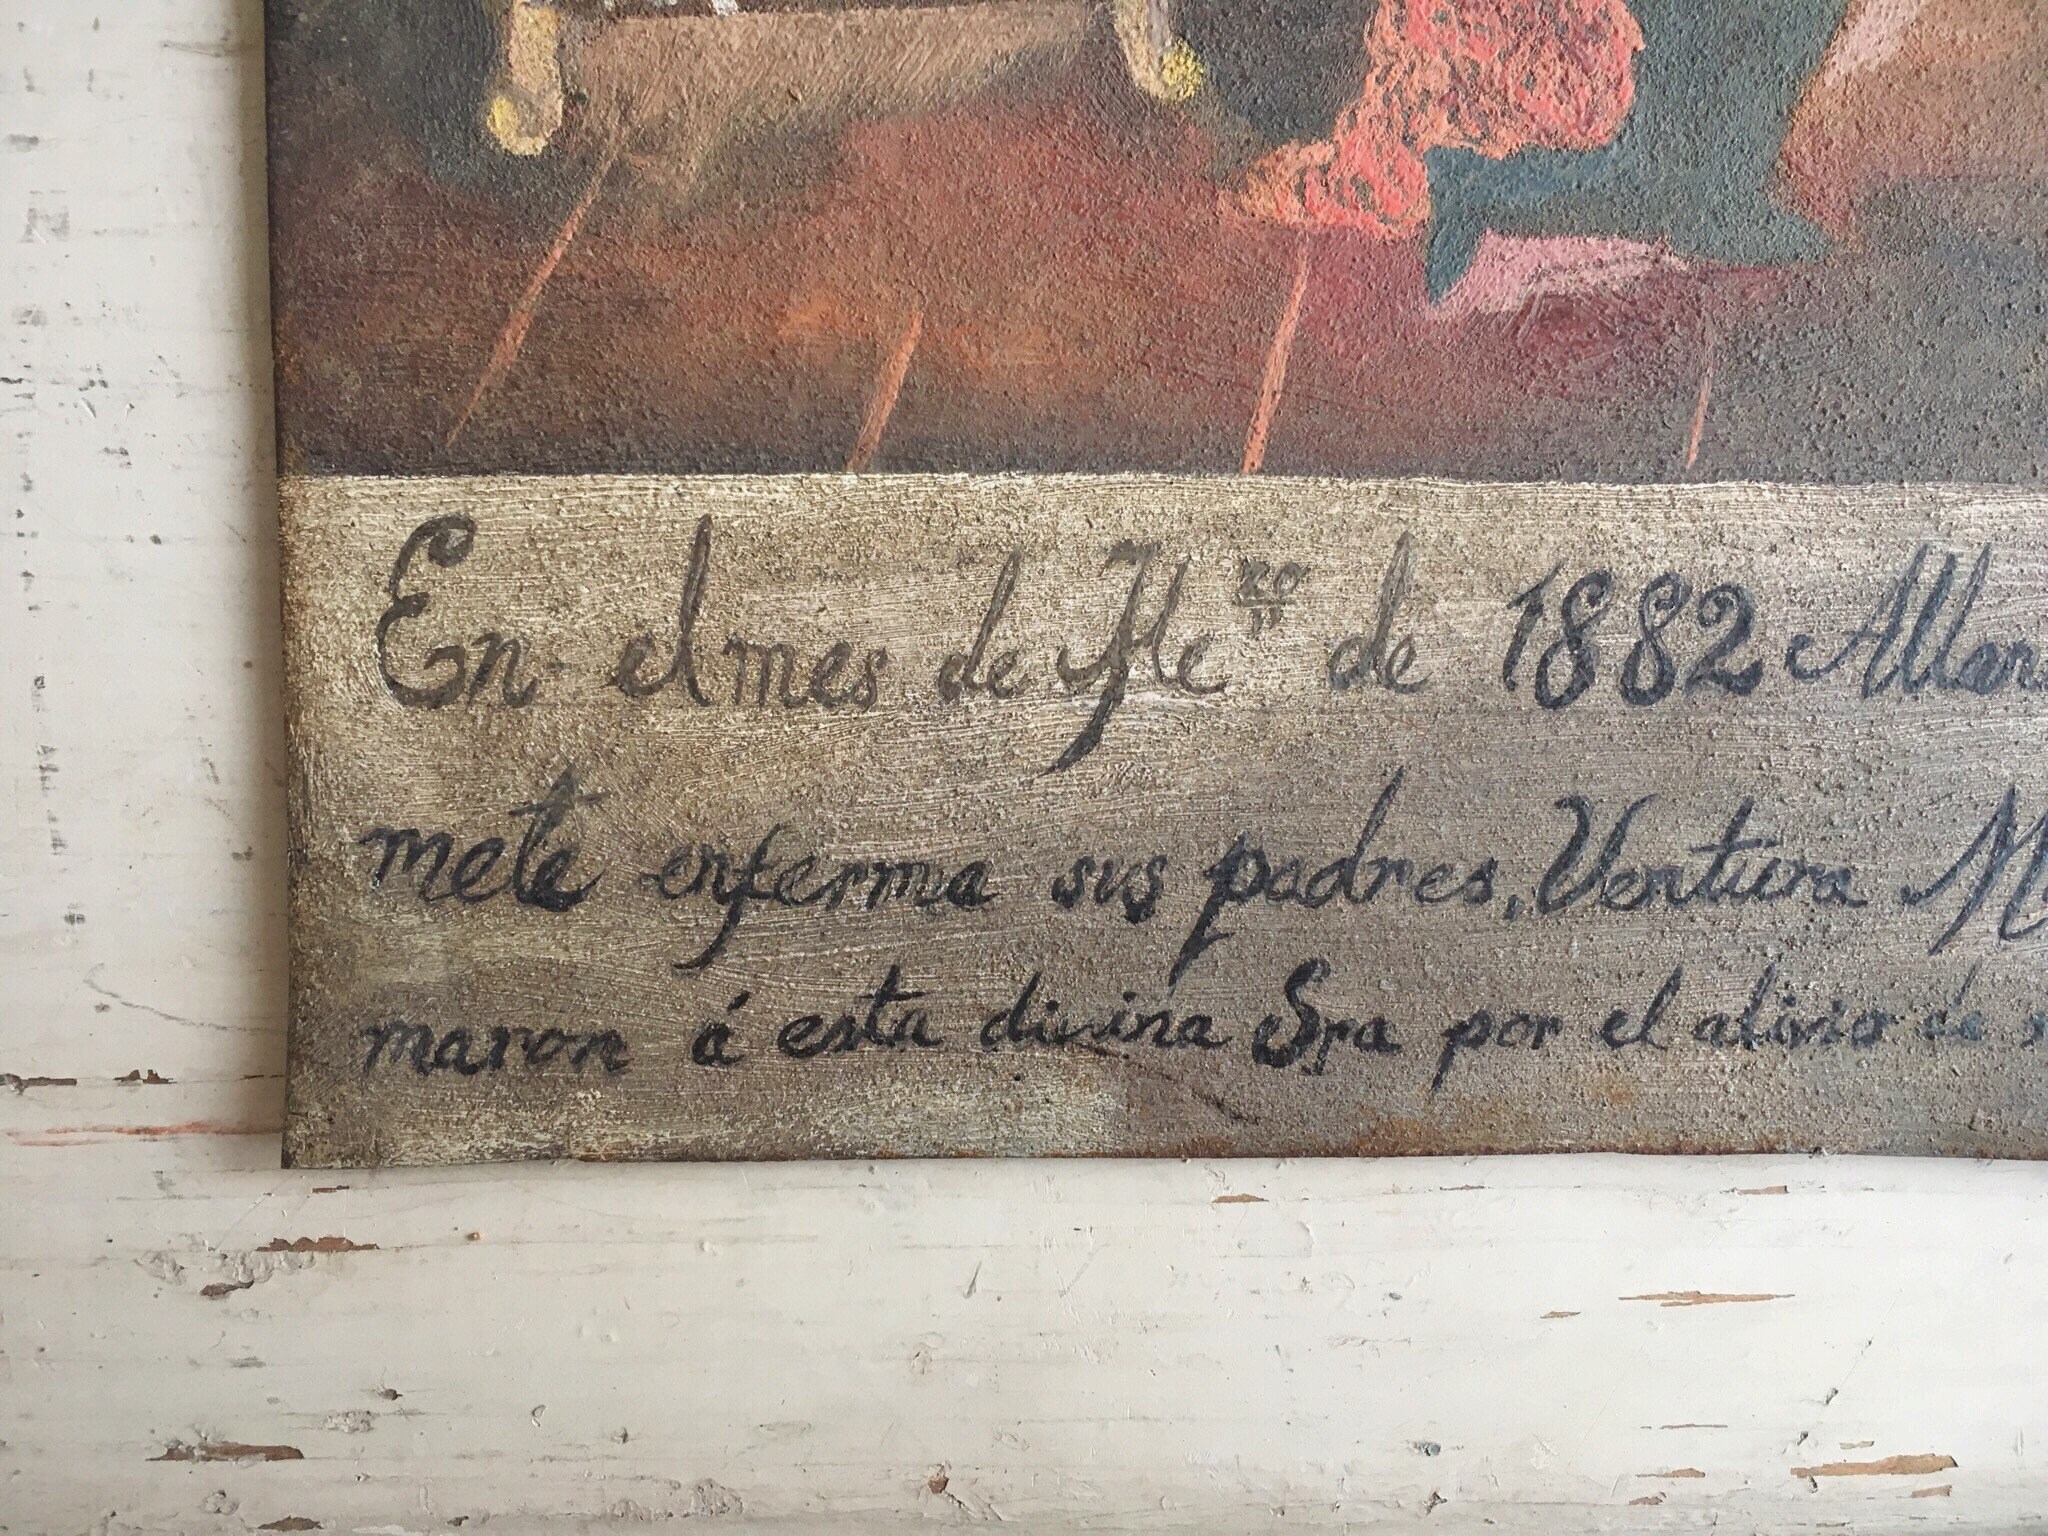 En el mes de de 1882
mete enferma sus padres, Ventura
maron á esta divina Sra por el alivio de